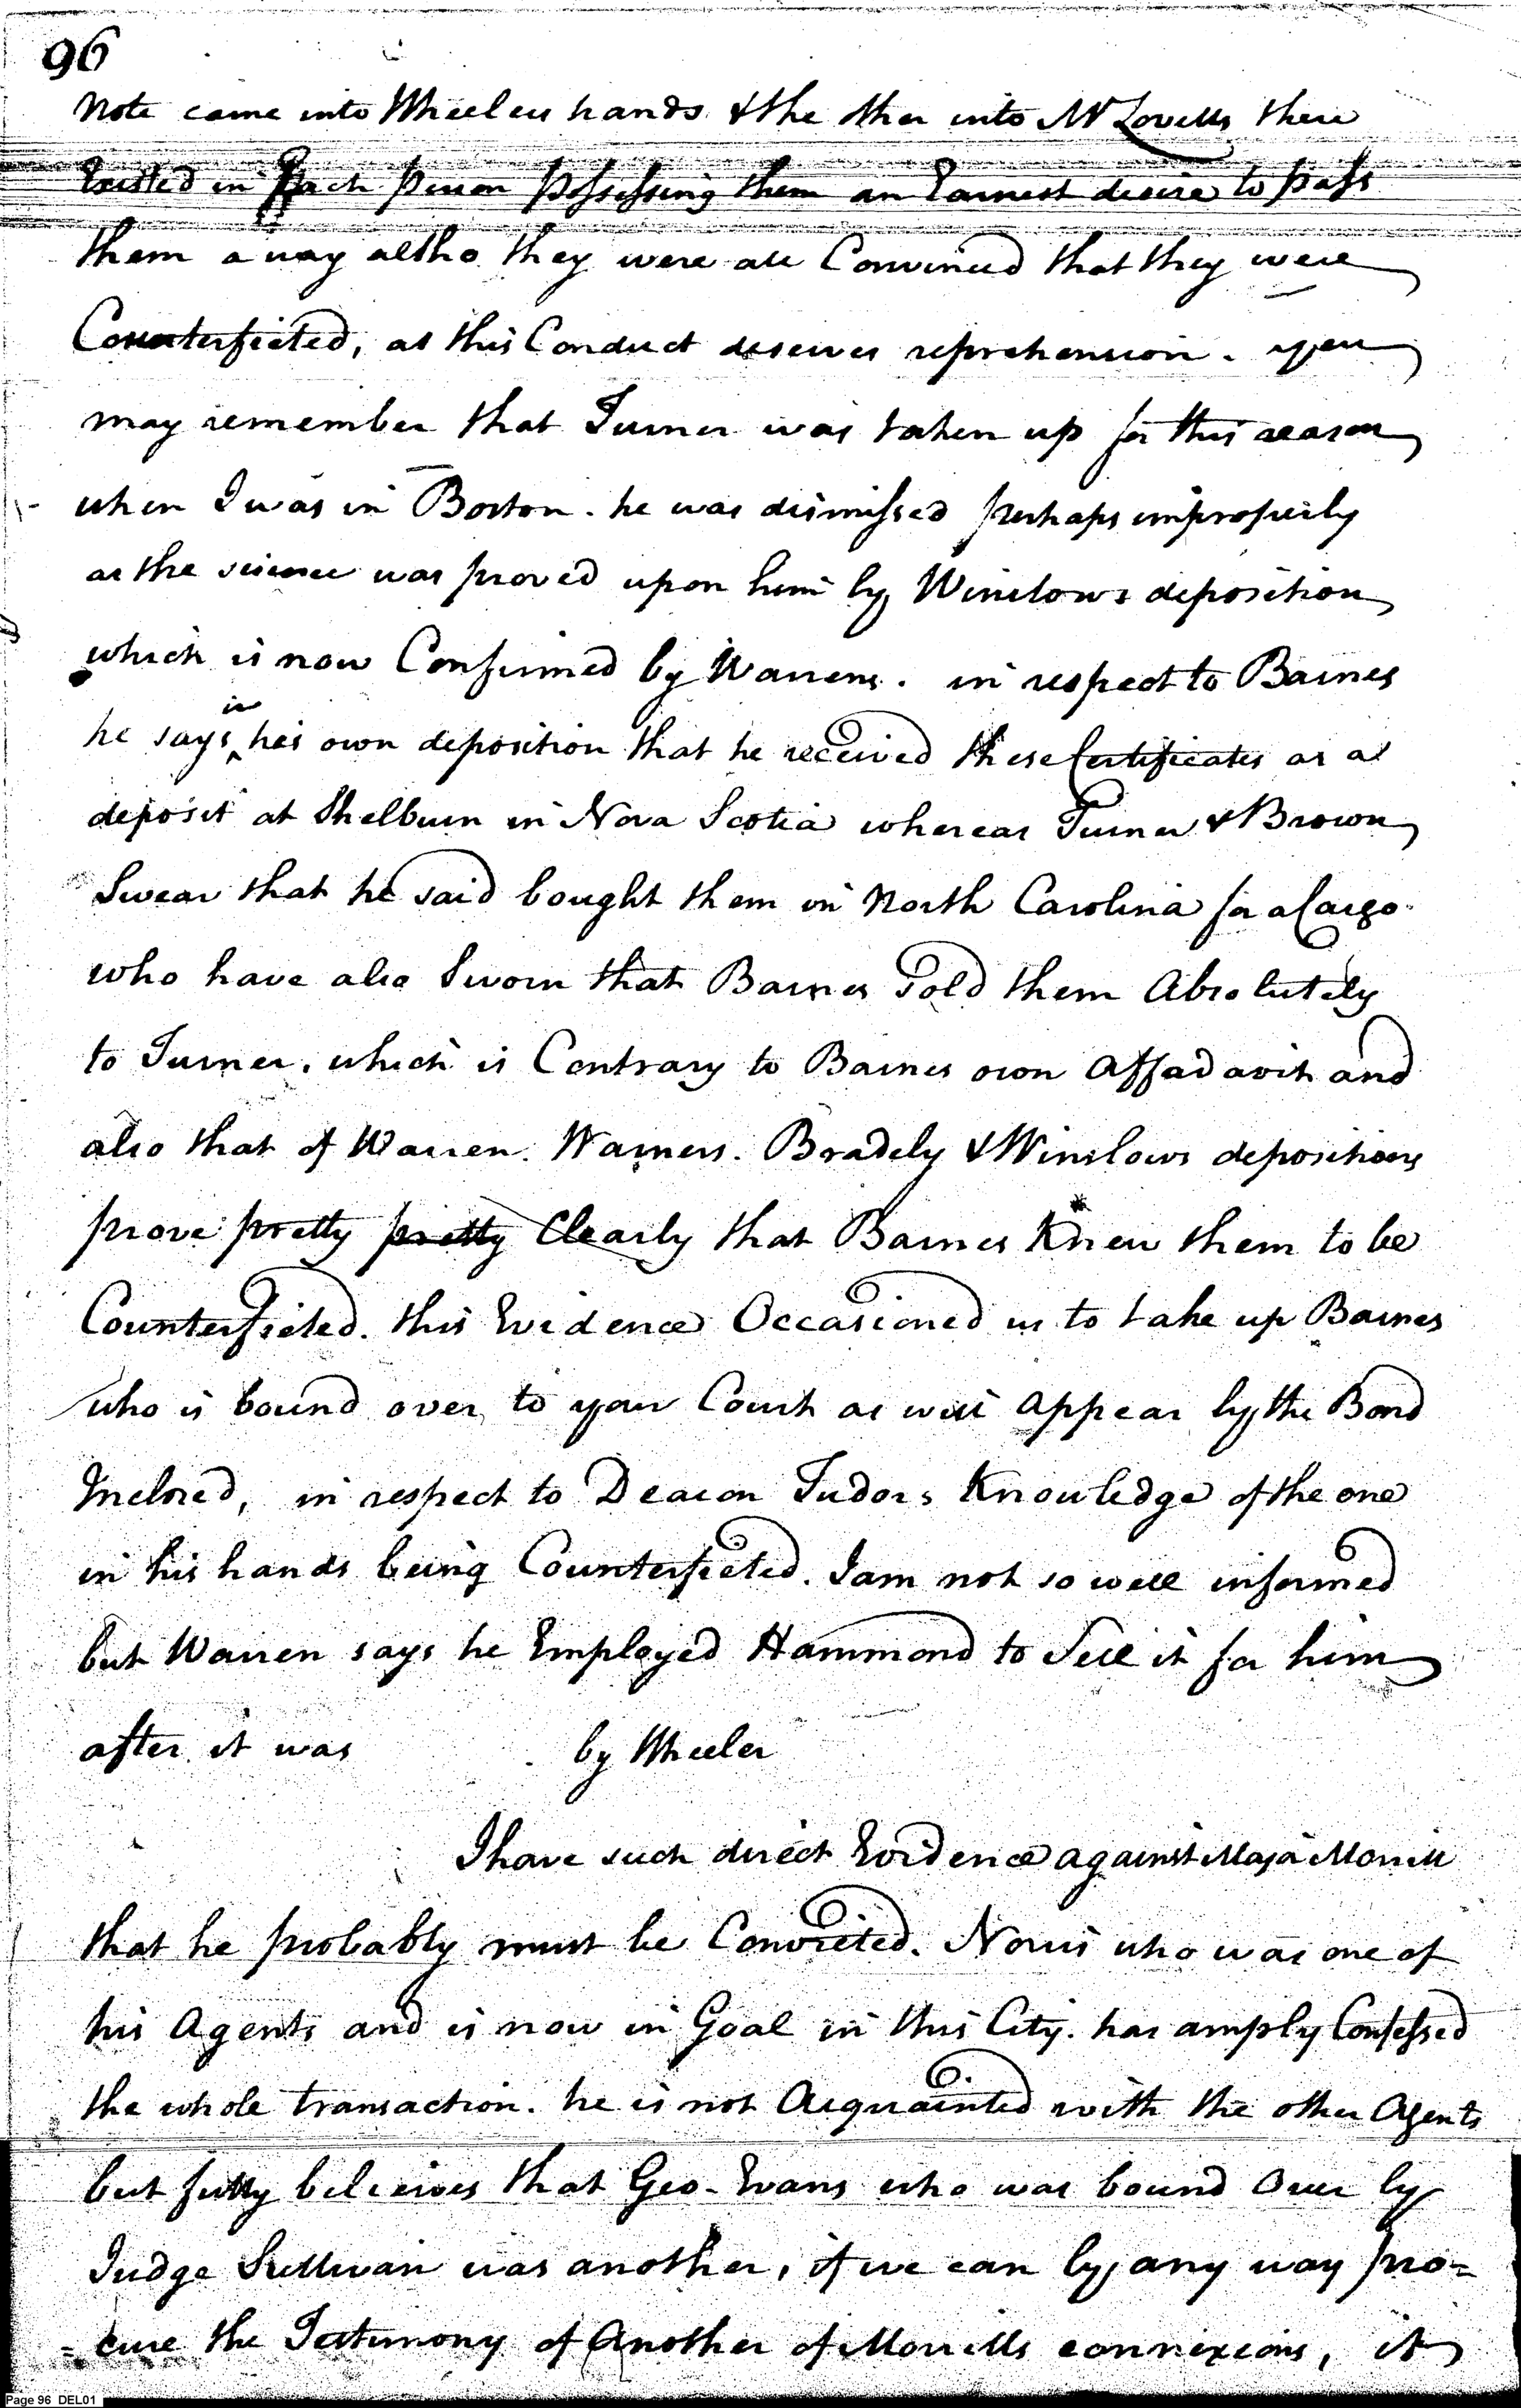 96
Note came into Wheelers hands & the other into Mr Lovells there
Existed in Each person possessing them an Earnest desire to pass
them away altho they were all Convinced that they were
Counterfieted, as this Conduct deserves reprehension. you
may remember that Turner was taken up for this reason
when I was in Boston. he was dismissed perhaps improperly
as the science was proved upon him by Winslows deposition
which is now Confirmed by Warrens. in respect to Barnes
he says in his own deposition that he received these Certificates as a
deposit at Shelburn in Nova Scotia whereas Turner & Brown
Swear that he said bought them in North Carolina for a Cargo
who have also Sworn that Barnes Sold them Absolutely
to Turner. which is Contrary to Barnes own Affadavit and
also that of Warren. Warners. Bradely & Winslows depositions
prove pretty pretty Clearly that Barnes Knew them to be
Counterfieted. this Evidence Occasioned us to take up Barnes
who is bound over to your Court as will appear by the Bond
Inclosed, in respect to Deacon Tudors Knowledge of the one
in his hands being Counterfieted. I am not so well informed
but Warren says he Employed Hammond to Sell it for him
after it was by Wheeler
I have such direct Evidence against Major Morrill
that he probably must be Convicted. Norris who was one of
his Agents and is now in Goal in this City. has amply Confessed
the whole transaction. he is not Acquainted with the other Agents
but fully believes that Geo. Evans who was bound Over by
Judge Sullivan was another, if we can by any way pro=
=cure the Testimony of Another of Morrills connexions, it
Page 96 DEL01